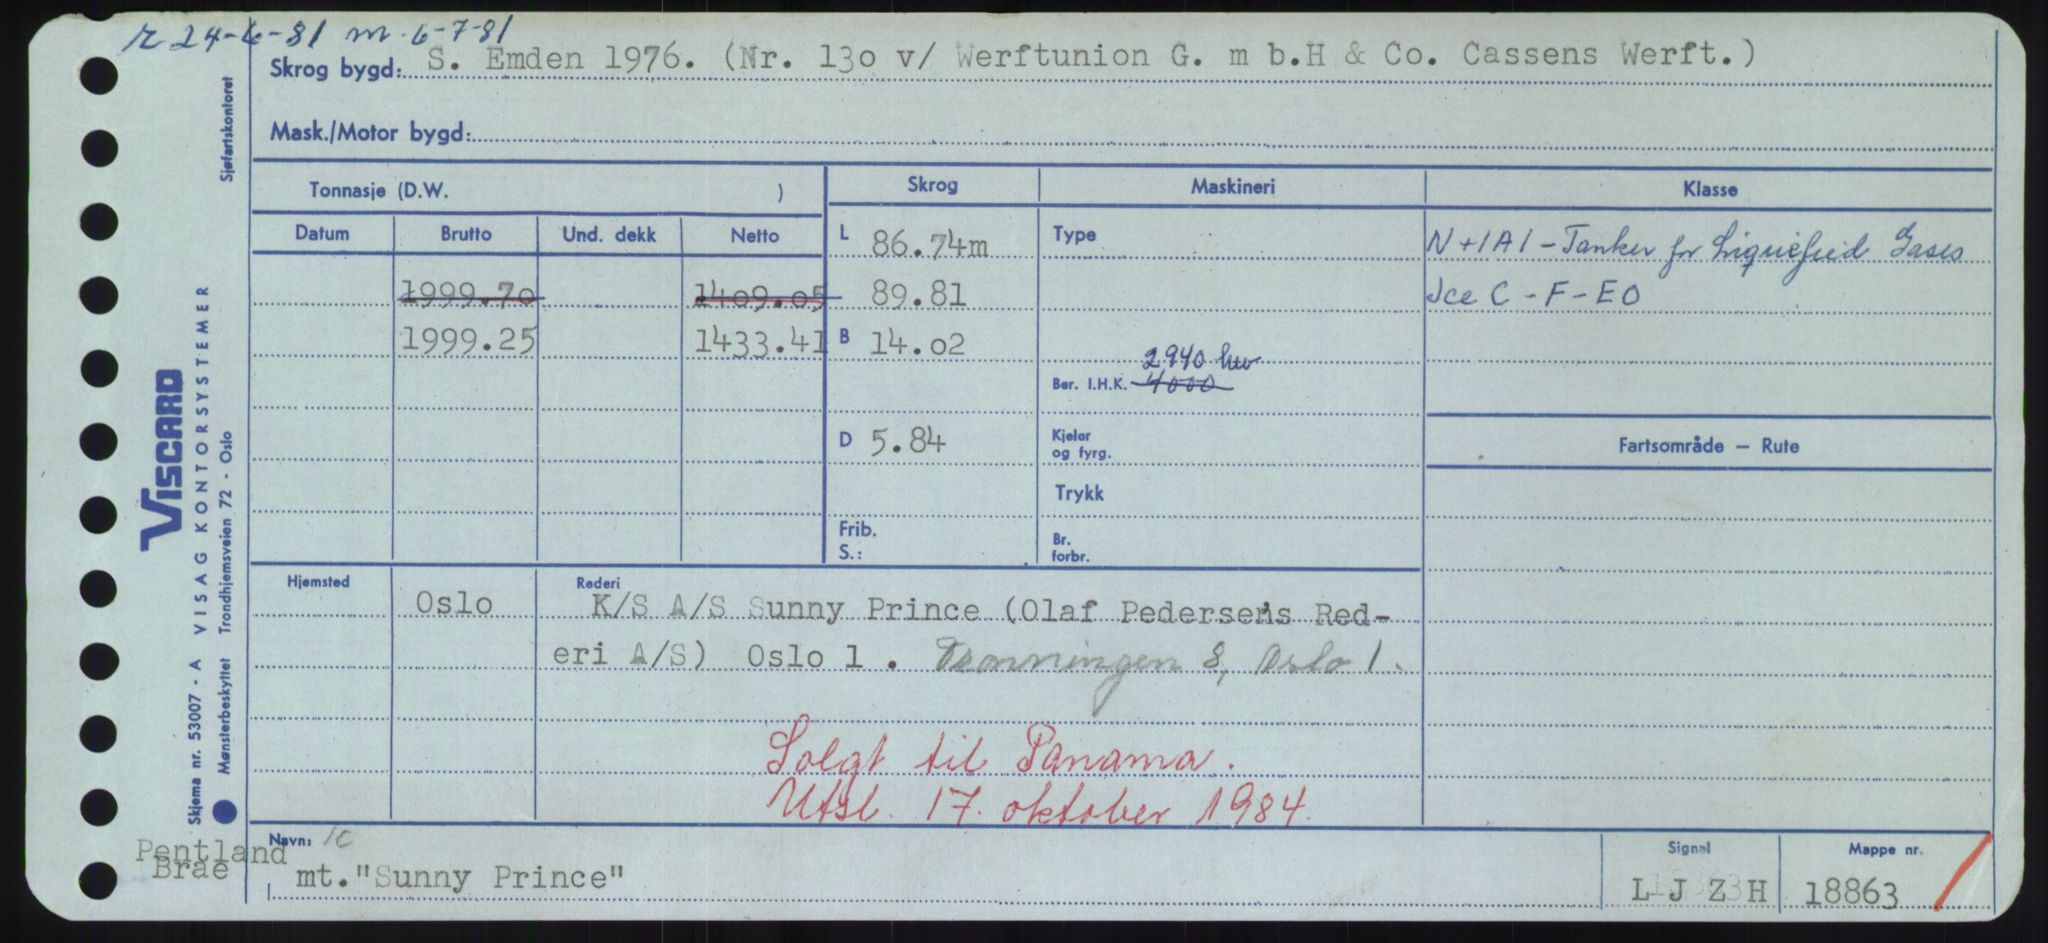 r 24-6-81 m. 6-7-81
Skrog bygd: S. Emden 1976. (Nr. 13o v/ Werftunion G. m b.H & Co. Cassens Werft.)
Mask./Motor bygd:
Tonnasje (D.W. )
Skrog
Maskineri
Klasse
Datum Brutto Und. dekk Netto
L 86.74m
Type
N +1A1 - Tanker for Liquefied Gases
1999.7o 14o9.o5
89.81
Ice C - F - EO
1999.25 1433.41
B 14.o2
2940
Ber. I.H.K. 4000
D 5.84
Kjeler
og fyrg.
Fartsområde — Rute
Trykk
Frib.
S.:
Br.
forbr.
Hjemsted
Rederi
Oslo
K/S A/S Sunny Prince (Olaf Pedersens Red-
eri A/S) Oslo 1. Dronningen 8, Oslo 1.
Solgt til Panama.
Utsl. 17. oktober 1984.
Navn:
Pentland
Brae
mt."Sunny Prince"
Signal
L J Z H
Mappe nr.
18863
VISCARD
VISAG KONTORSYSTEMER
Skjema nr. 53007 - A
Mønsterbeskyttet Trondhjemsveien 72 - Oslo
Sjøfartskontoret